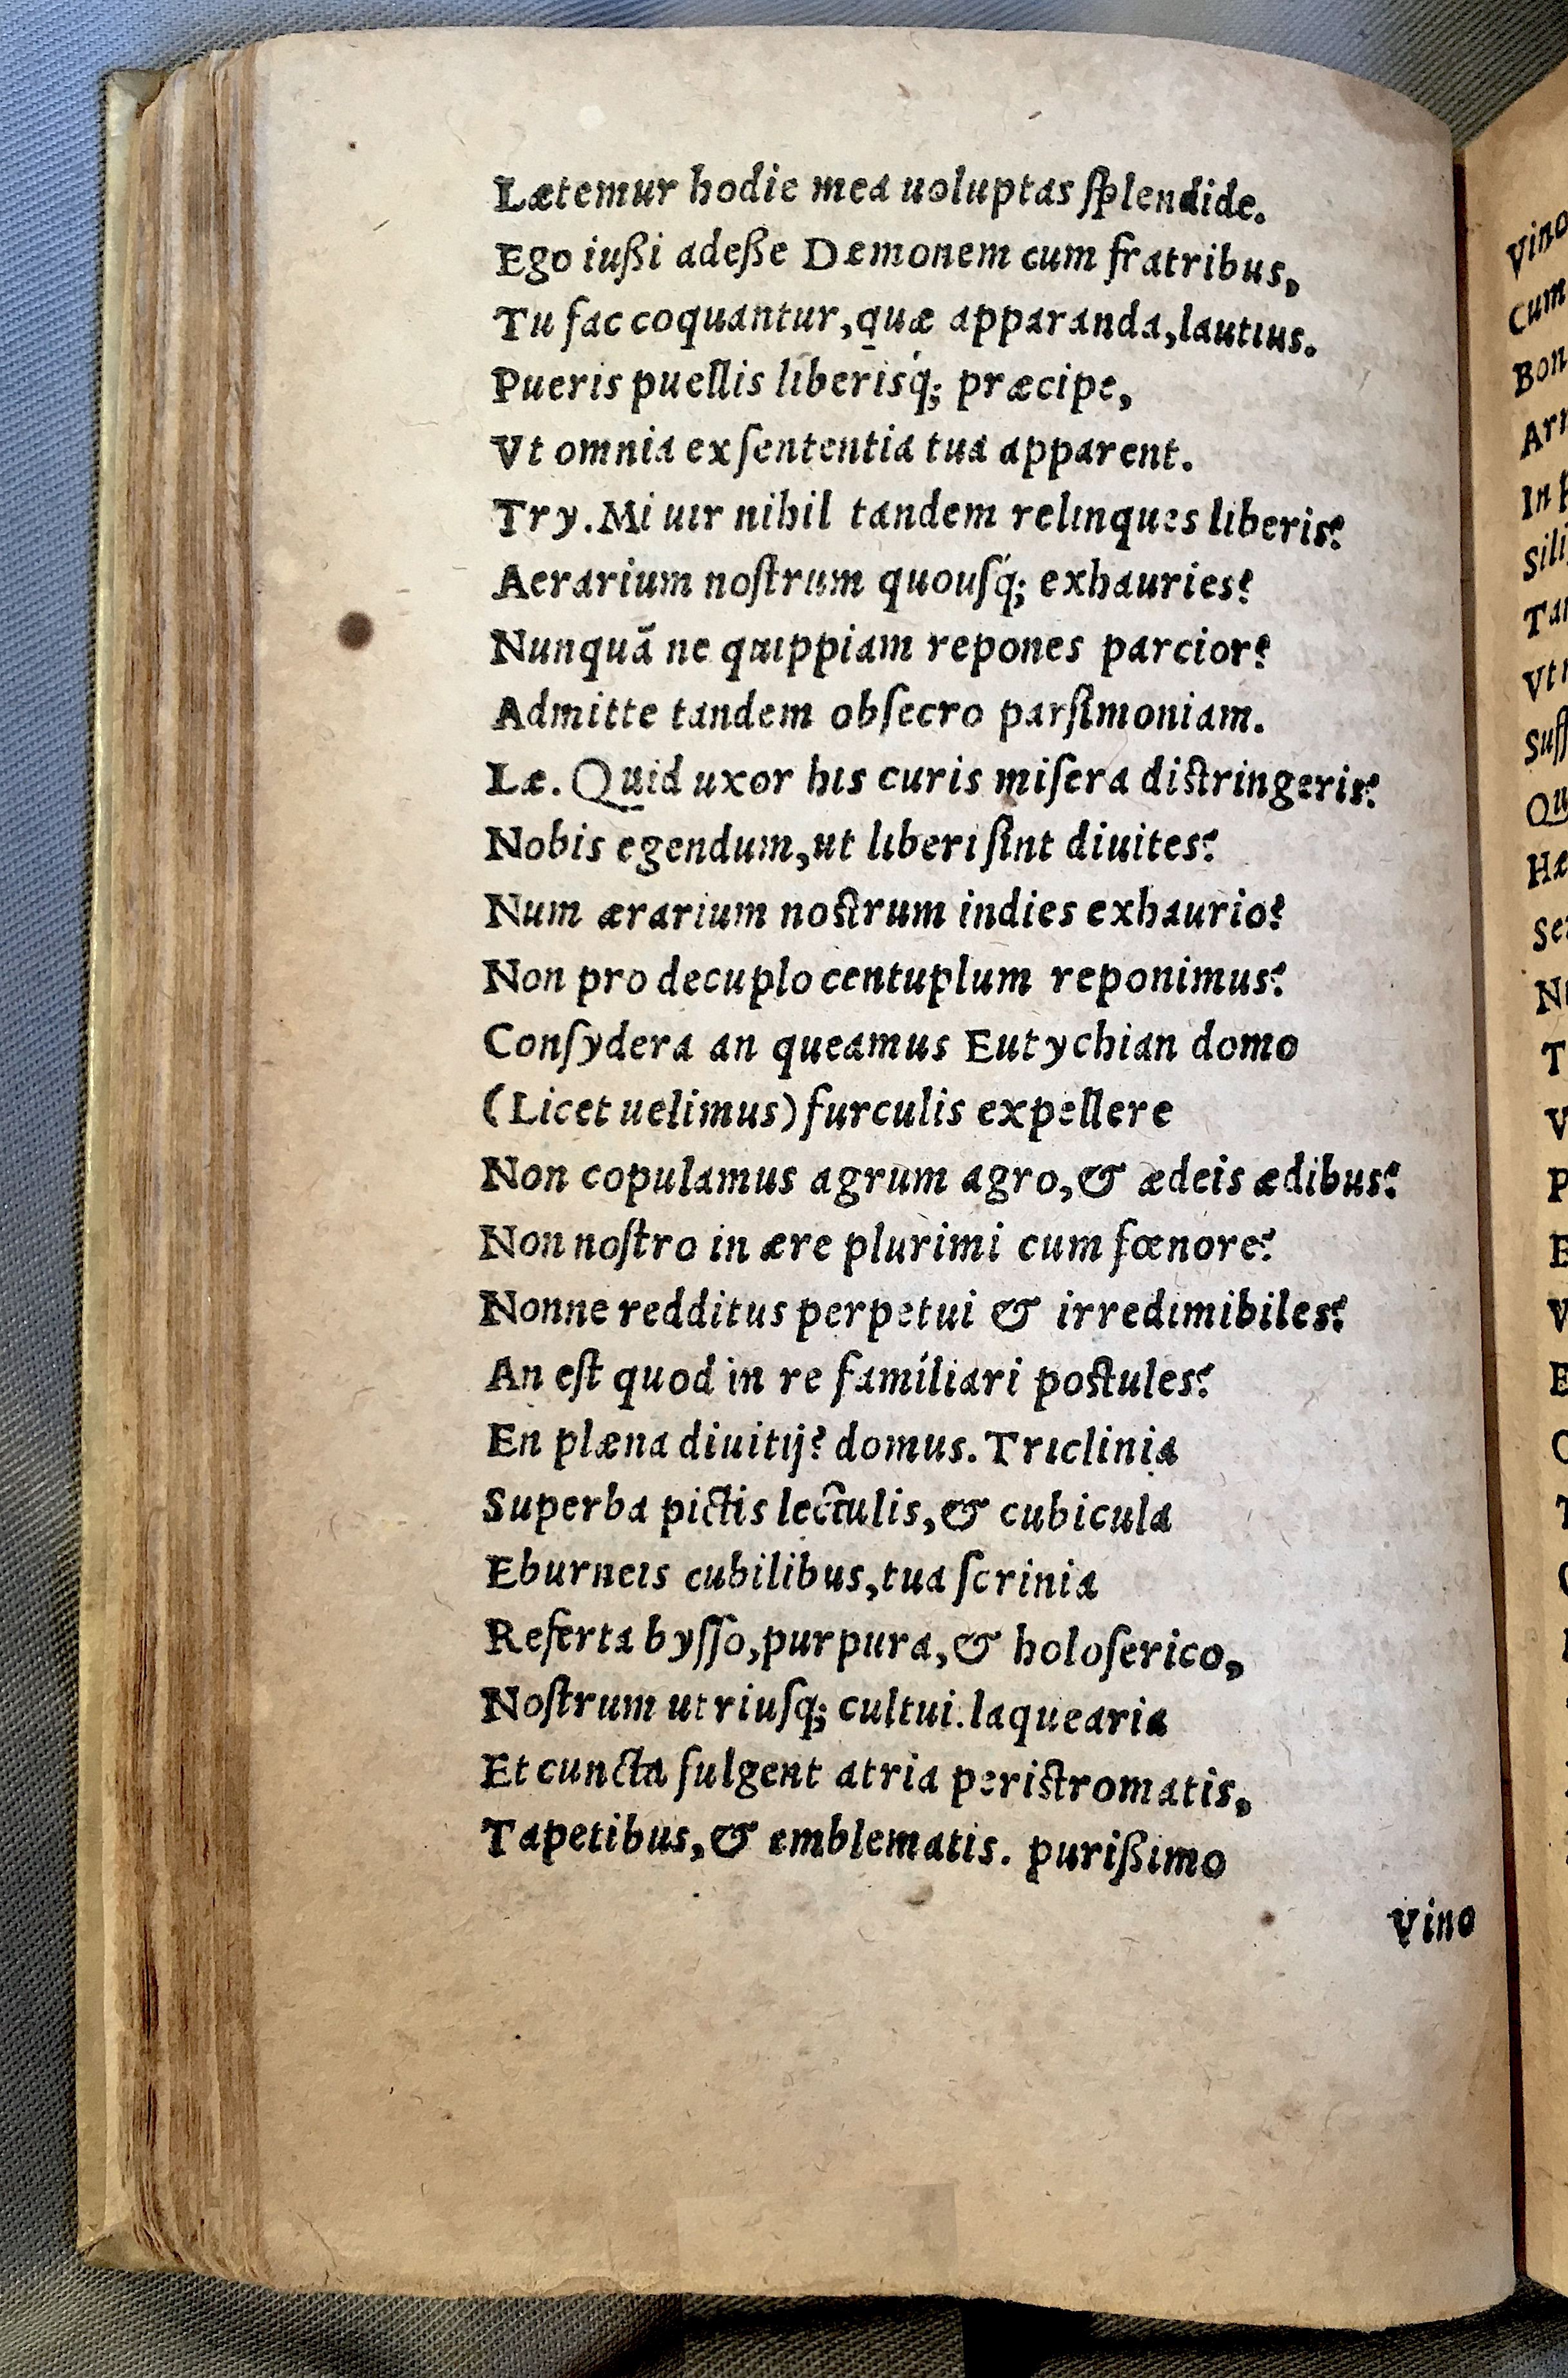 Lætemur hodie mea uoluptas ſplendide.
Ego iußi adeße Dæmonem cum fratribus,
Tu fac coquantur, quæ apparanda, lautius.
Pueris puellis liberisq́; præcipe,
Vt omnia ex ſententia tua apparent.
Try. Mi uir nihil tandem relinques liberis?
Aerarium noſtrum quouſq́; exhauries?
Nunquã ne quippiam repones parcior?
Admitte tandem obſecro parſimoniam.
Læ. Quid uxor his curis miſera diſtringeris?
Nobis egendum, ut liberi ſint diuites?
Num ærarium noſtrum indies exhaurio?
Non pro decuplo centuplum reponimus?
Conſydera an queamus Eutychian domo
(Licet uelimus) furculis expellere
Non copulamus agrum agro, & ædeis ædibus?
Non noſtro in ære plurimi cum fœnore?
Nonne redditus perpetui & irredimibiles?
An eſt quod in re famíliari poſtules?
En plæna diuitij? domus. Triclinia
Superba pictis lectulis, & cubicula
Eburneis cubilibus, tua ſcrinia
Referta byſſo, purpura, & holoſerico,
Noſtrum utriuſq; cultui. laquearia
Et cuncta fulgent atria periſtromatis,
Tapetibus, & emblematis. purißimo
Vino
Vino
Cum
Bon